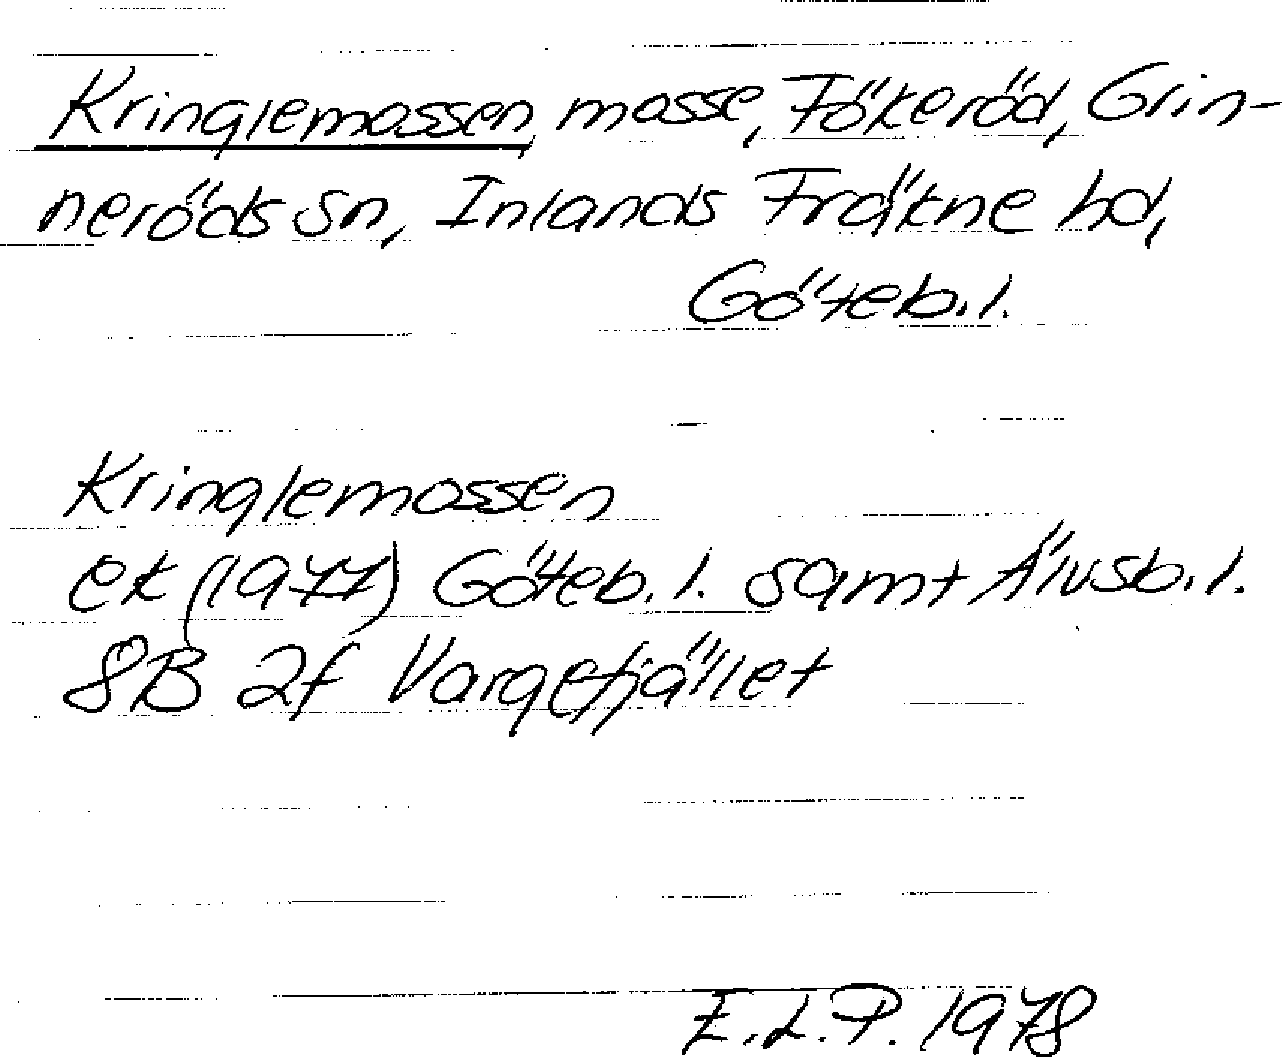 Kringlemossen, mosse, Fökeröd, Grin-
neröds sn, Inlands Fräkne hd,
Göteb.l.
Kringlemossen
ek (1977) Göteb.l. samt Älvsb.l.
8B 2f Vargefjället
E.L.P. 1978